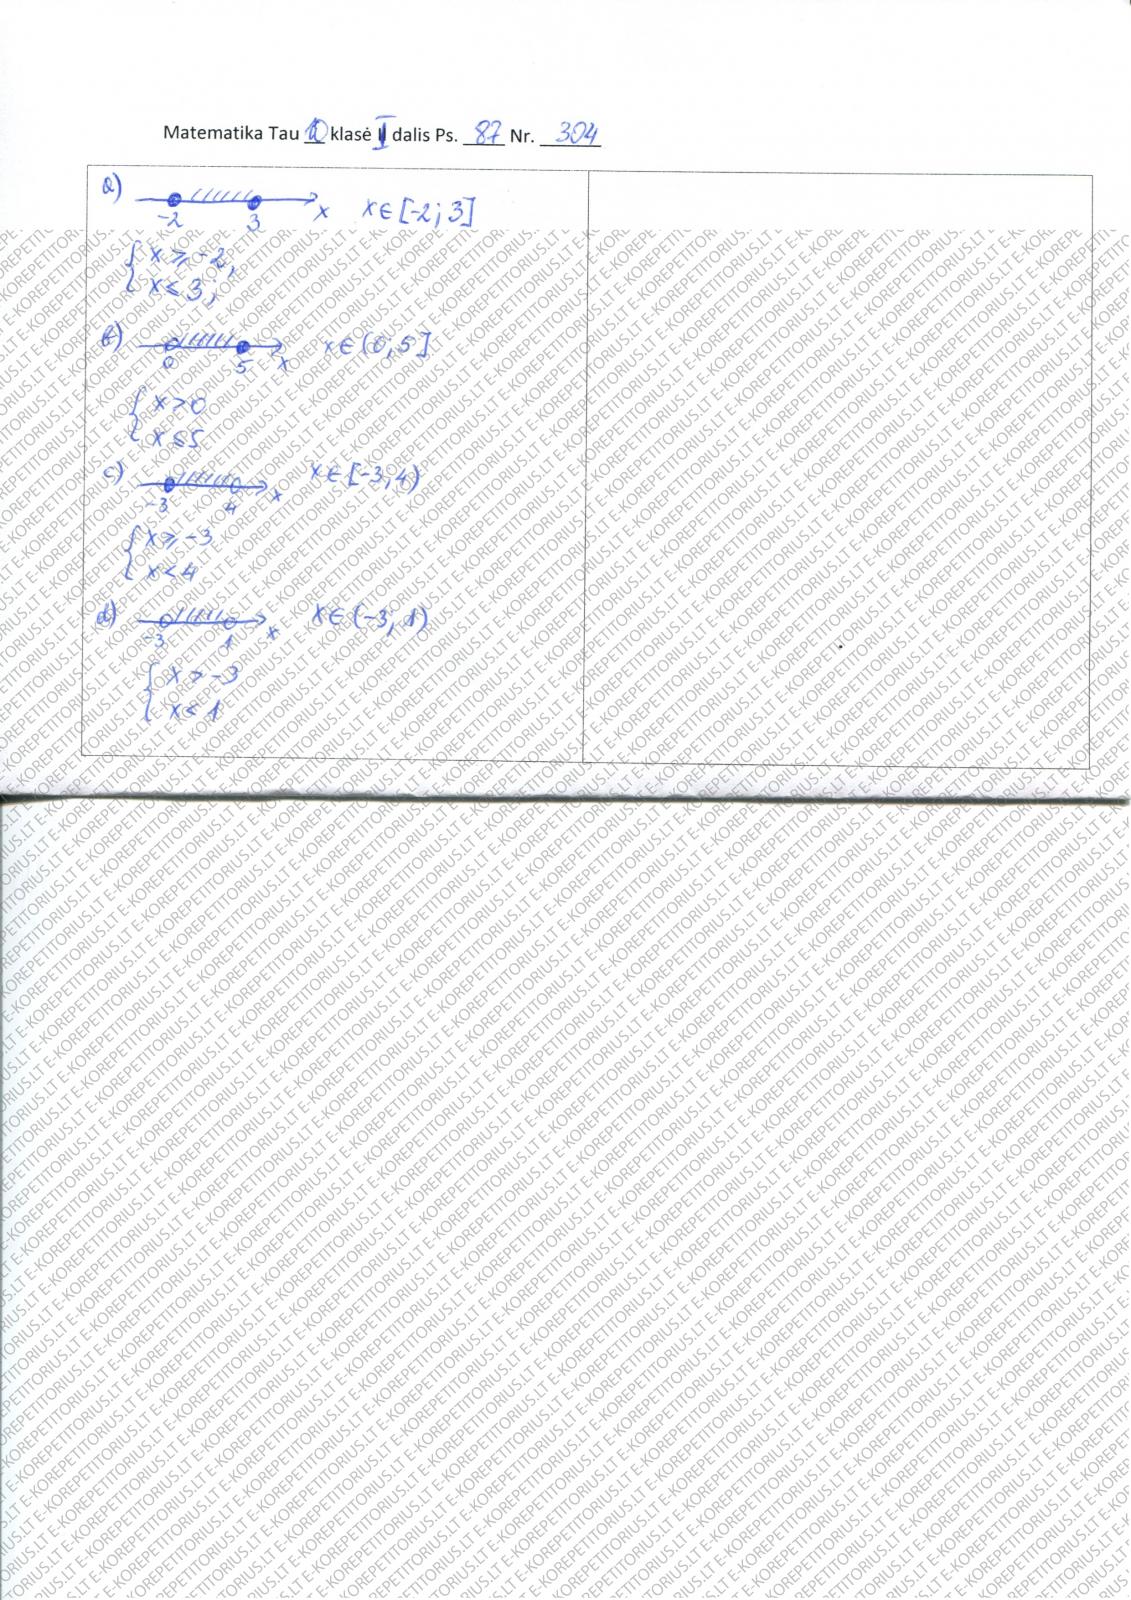 Matematika Tau klasė I dalis Ps. 87 Nr. 304
a) -2 3 x x∈[-2; 3]
{ x ⩾ -2,
x ⩽ 3;
b) 0 5 x x∈(0; 5]
{ x > 0
x ⩽ 5
c) -3 4 x x∈[-3; 4)
{ x ⩾ -3
x < 4
d) -3 1 x x∈(-3; 1)
{ x > -3
x < 1
E-KOREPETITORIUS.LT